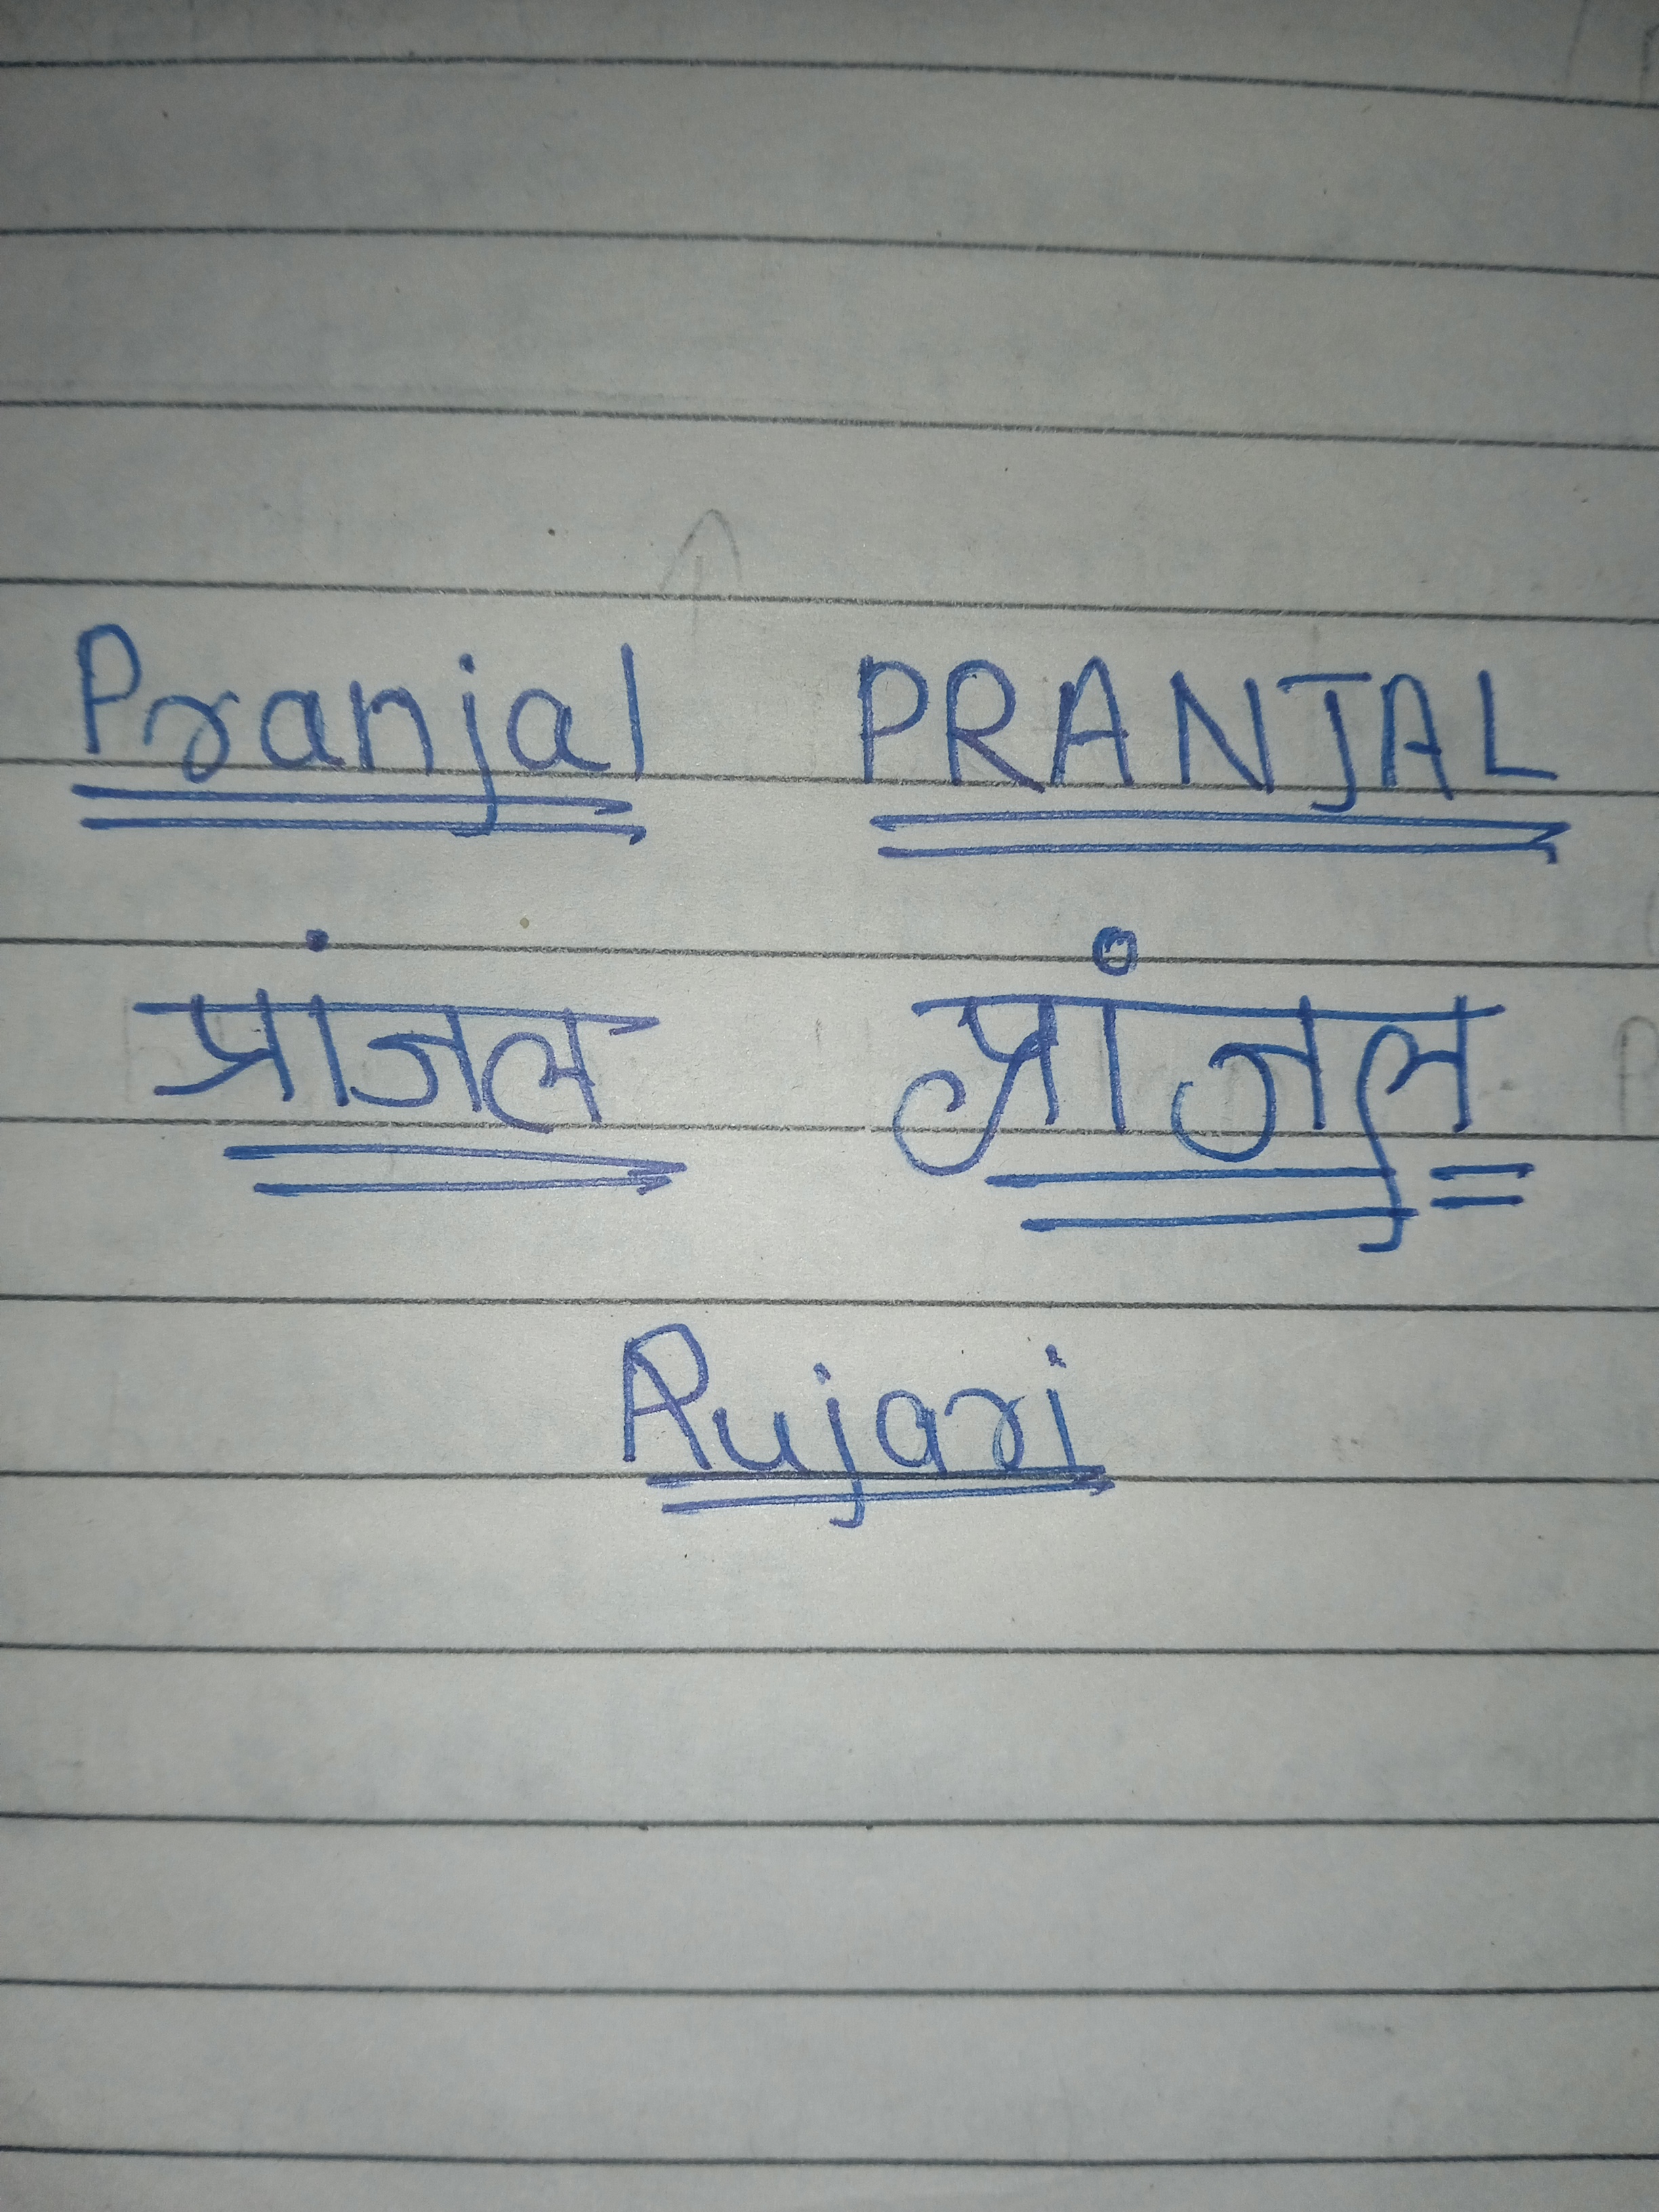 Pranjal PRANJAL
प्रांजल प्रांजल
Pujari